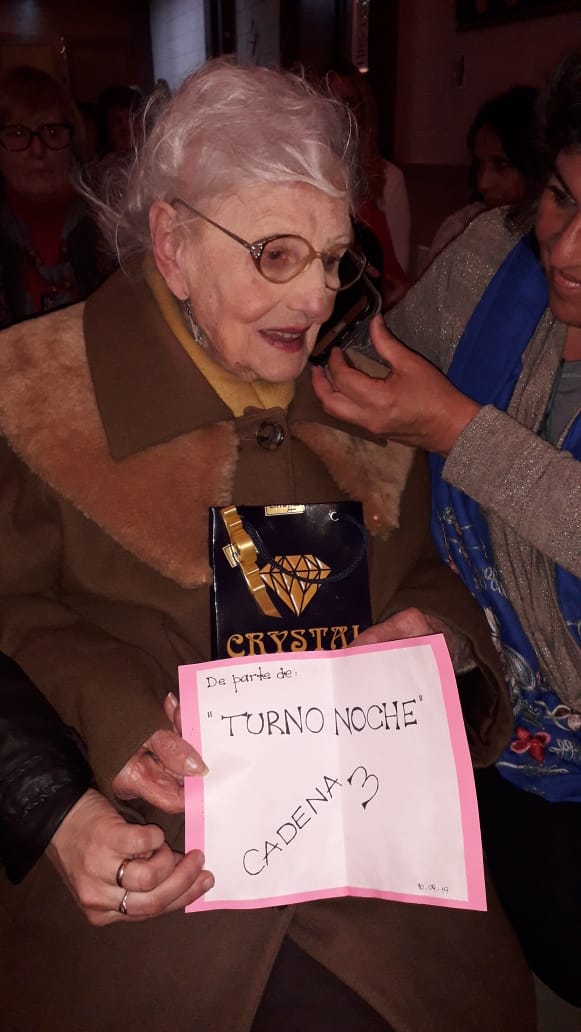 CRYSTAL
De parte de:
"TURNO NOCHE"
CADENA 3
10.09.19